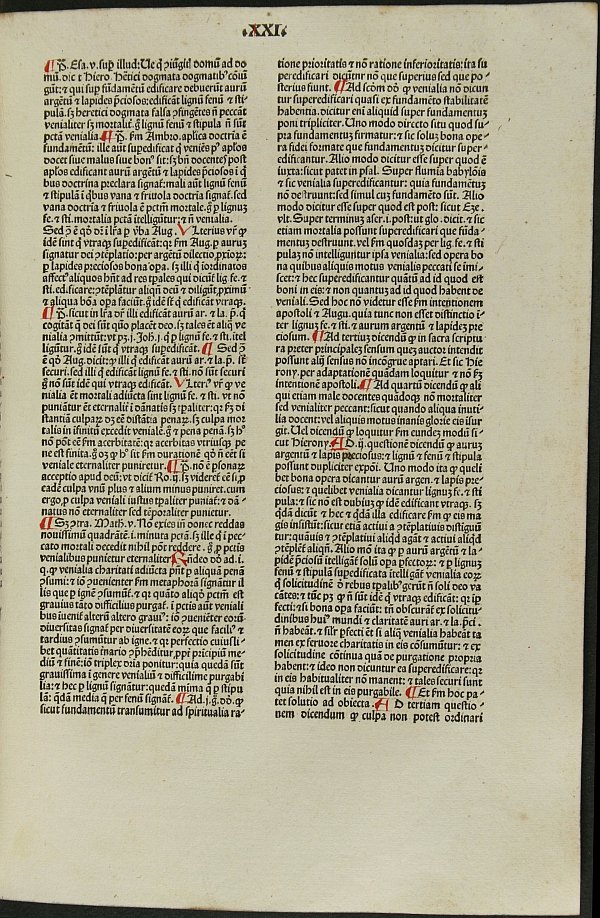 ·XXI·
¶ P̄. Esa. v. sup̄ illud: Ue q̄ ꝯiũgit̃ domũ ad do
mũ. dic̄ t Hiero. h̃etici dogmata dogmatibꝰ cõiũ
gũt: ⁊ qui sup̄ fũdamẽtũ edificare debuerũt aurũ
argẽtũ ⁊ lapides p̄ciosos: edificãt lignũ fenũ ⁊ sti-
pulã. sꝫ heretici dogmata falsa ꝯfingẽtes ñ peccãt
venialiter sꝫ mortalit̃. g̊ lignũ fenũ ⁊ stipula ñ sũt
pctã venialia. ¶ P̄. fm̃ Ambro. aplica doctria ẽ
fundamẽtũ: ille aũt supedificat q̄ veniẽs pꝰ aplos
docet siue malus siue bonꝰ sit: sꝫ bñ docentes post
aplos edificant aurũ argẽtũ ⁊ lapides p̄ciosos i q̄
bus doctrina preclara signat̃: mali aũt lignũ fenũ
⁊ stipulã i q̄bus vana ⁊ friuola doctria signat̃. sed
vana doctria ⁊ friuola ẽ pctm̃ mortale. g̊ ꝑ lignũ
fe. ⁊ sti. mortalia pctã itelligũtur: ⁊ ñ venialia.
Sed ꝯ ẽ qd̊ dr̃ i lr̃a ꝑ v̄ba Aug. Ulterius vr̃ ꝙ
idẽ sint q̄ vtraqꝫ supedificãt: q̃ fm̃ Aug. ꝑ aurũ
signatur dei ꝯtẽplatio: per argẽtũ dilectio ꝓxior̃:
ꝑ lapides p̄ciosos bona opa. sꝫ illi q̄ iordinatos
affectꝰ aliquos hñt ad res tpales qui dicũt̃ lig. fe. ⁊
sti. edificare: ꝯtẽplãtur aliqñ deũ ⁊ diligũt ꝓximũ
⁊ aliqua bõa opa faciũt. g̊ idẽ sũt q̄ edificãt vtraqꝫ.
¶ P̄. sicut in lr̃a dr̃ illi edificãt aurũ ar. ⁊ la. p̄. q̄
cogitãt q̄ dei sũt quõ placeãt deo. sꝫ tales ẽt aliq̄ ve
nialia ꝯmittũt: vt pꝫ. j. Joh. j. q̄ ꝑ lignũ fe. ⁊ sti. itel
ligũtur. g̊ idẽ sunt q̄ vtraqꝫ supedificãt. ¶ Sed ꝯ
ẽ qd̊ Aug. dicit: ꝙ illi q̄ edificãt aurũ ar. ⁊ la. p̄. sũt
securi. sed illi q̄ edificãt lignũ fe. ⁊ sti. nõ sũt securi
g̊ nõ sũt idẽ qui vtraqꝫ edificãt. Ulterꝰ vr̃ ꝙ ve
nialia ẽt mortali adiũcta sint lignũ fe. ⁊ sti. vt nõ
puniãtur ẽt eternalit̃ i dãnatis sꝫ tꝑaliter: q̃ fꝫ di
stantiã culparꝫ dꝫ eẽ distãtia penarꝫ. sꝫ culpa mor
talis in ifinitũ excedit venialẽ. g̊ ⁊ pena penã. sꝫ hꝰ
nõ põt eẽ fm̃ acerbitatẽ: q̃ acerbitas vtriusqꝫ pe
ne est finita. g̊ oꝫ ꝙ hꝰ sit fm̃ durationẽ qd̊ ñ eẽt si
veniale eternaliter puniretur. ¶ P̄. nõ ẽ ꝑsonarꝫ
acceptio apud deũ: vt dicit̃ Ro. ij. sꝫ videret̃ eẽ si ꝓ
eadẽ culpa vnũ plus ⁊ alium minus puniret. cum
ergo ꝓ culpa veniali iustus tꝑaliter puniat̃: ⁊ dã-
natus nõ eternaliter sed tẽporaliter punietur.
¶ Sꝫ ꝯtra. Math. v. Nõ exies in donec reddas
nouissimũ quadrãtẽ. i. minuta pctã. sꝫ ille q̄ i pec-
cato mortali decedit nihil põt reddere. g̊ ꝓ pctis
venialibus punietur eternaliter. Rñdeo dõ ad. i.
q. ꝙ venialia charitati adiũcta pñt ꝑ aliquã penã
ꝯsumi: ⁊ iõ ꝯuenienter fm̃ metaphorã signãtur il
lis que ꝑ ignẽ ꝯsumũt̃. ⁊ q̃ quãto aliqd̊ pctm̃ est
grauius tãto difficilius purgat̃. i pctis aũt veniali
bus iuenit̃ alterũ altero grauiꝰ: iõ ꝯueniẽter eorũ
diuersitas signat̃ per diuersitatẽ eorꝫ que faciliꝰ ⁊
tardius ꝯsumũtur ab igne. ⁊ q̃ perfectio cuiusli-
bet quãtitatis ĩnario ꝯp̄hẽditur, ꝓpt̃ pricipiũ me-
diũ ⁊ finẽ: iõ triplex dria ponitur: quia quedã sũt
grauissima i genere venialiũ ⁊ difficilime purgabi
lia: ⁊ hec ꝑ lignũ signãtur: quedã mima q̄ ꝑ stipu
lã: q̄dã media q̄ per fenũ signãt̃. ¶ Ad. j. g̊. dõ. ꝙ
sicut fundamentũ transumitur ad spiritualia ra-
tione prioritatis ⁊ nõ ratione inferioritatis: ita su
peredificari dicũtur nõ que superius sed que po-
sterius fiunt. ¶ Ad scd̃m dõ ꝙ venialia nõ dicun
tur superedificari quasi ex fundamẽto stabilitatẽ
habentia. dicitur eni aliquid super fundamentuꝫ
poni tripliciter. Uno modo directo situ quod su-
pra fundamentuꝫ firmatur: ⁊ sic soluꝫ bona ope-
ra fidei formate que fundamentuꝫ dicitur super-
edificantur. Alio modo dicitur esse super quod ẽ
iuxta: sicut patet in psal. Super flumia babylõis
⁊ sic venialia superedificantur: quia fundamẽtuꝫ
non destruunt: sed simul cuꝫ fundamẽto sũt. Alio
modo dicitur esse super quod est post: sicut Eze.
vlt. Super terminuꝫ aser. i. post: vt glo. dicit. ⁊ sic
etiam mortalia possunt superedificari que funda-
mentuꝫ destruunt. vel fm̃ quosdaꝫ per lig. fe. ⁊ sti
pulaꝫ nõ intelliguntur ipsa venialia: sed opera bo
na quibus aliquis motus venialis peccati se imi-
scet: ⁊ hec superedificantur quãtũ ad id quod est
boni in eis: ⁊ non quantuꝫ ad id quod habent de
veniali. Sed hoc nõ videtur esse fm̃ intentionem
apostoli ⁊ Augu. quia tunc non esset distinctio i-
ter lignuꝫ fe. ⁊ sti. ⁊ aurum argentũ ⁊ lapideꝫ pre
ciosum. ¶ Ad tertiuꝫ dicendũ ꝙ in sacra scriptu
ra preter principaleꝫ sensum queꝫ auctor intendit
possunt alij sensus nõ incõgrue aptari. Et sic Hie
rony. per adaptationẽ quãdam loquitur ⁊ nõ fꝫ
intentionẽ apostoli. ¶ Ad quartũ dicendũ ꝙ ali
qui etiam male docentes quãdoqꝫ nõ mortaliter
sed venialiter peccant: sicut quando aliqua inuti-
lia docent: vel aliquis motus inanis glorie eis isur
git. Uel dicendũ ꝙ loquitur fm̃ eundeꝫ modũ si-
cut Hierony. AD. ij. questionẽ dicendũ ꝙ aurũ
argentũ ⁊ lapis preciosus: ⁊ lignũ ⁊ fenũ ⁊ stipula
possunt dupliciter exponi. Uno modo ita ꝙ queli
bet bona opera dicantur aurũ argen. ⁊ lapis pre-
ciosus: ⁊ quelibet venialia dicantur lignuꝫ fe. ⁊ sti
pula: ⁊ sic nõ est dubiuꝫ ꝙ idẽ edificant vtraqꝫ. sꝫ
q̄dã dicũt̃ ⁊ hec ⁊ q̄dã illa edificare fm̃ ꝙ eis ma
gis insistũt: sicut etiã actiui a ꝯtẽplatiuis distiguũ
tur: quãuis ⁊ ꝯtẽplatiui aliqd̊ agãt ⁊ actiui aliqd̊
ꝯtẽplẽt̃ aliqñ. Alio mõ ita ꝙ ꝑ aurũ argẽtũ ⁊ la-
pidẽ p̄ciosũ itelligãt̃ solũ opa ꝑfectorꝫ: ⁊ ꝑ lignuꝫ
fenũ ⁊ stipulã supedificata itelligãt̃ venialia eorꝫ
q̄ solicitudinẽ ꝺ̃ rebus tꝑalibꝰ gerũt̃ ñ soli deo va
cãtes: ⁊ tũc pꝫ ꝙ ñ sũt idẽ q̄ vtraqꝫ edificãt: q̃ iꝑ
fecti: ⁊ si bona opa faciũt: tñ obscurãt̃ ex solicitu-
dinibus huiꝰ mundi ⁊ claritatẽ auri ar. ⁊ la. p̄ci.
ñ habeãt. ⁊ silr̃ ꝑfecti ẽt si aliq̄ venialia habeãt ta
men ex feruore charitatis in eis cõsumũtur: ⁊ ex
solicitudine cõtinua quã de purgatione propria
habent: ⁊ ideo non dicuntur ea superedificare: q̃
in eis habitualiter nõ manent: ⁊ tales securi sunt
quia nihil est in eis purgabile. ¶ Et fm̃ hoc pa-
tet solutio ad obiecta. AD tertiam questio-
nem dicendum ꝙ culpa non potest ordinari